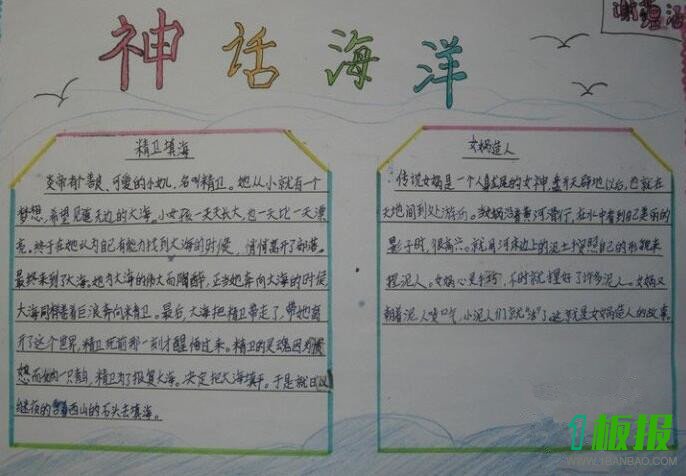 神话海洋
精卫填海
炎帝有个善良、可爱的小女儿,名叫精卫。她从小就有一个
梦想,希望见遍无边的大海。小女孩一天天长大,也一天比一天漂
亮。终于在她认为自己有能力找到大海的时候,悄悄离开了部落。
最终来到了大海,她为大海的伟大而陶醉,正当她奔向大海的时候
大海同样卷着巨浪奔向来精卫。最后,大海把精卫带走了,带她离
开了这个世界,精卫死前那一刻才醒悟过来。精卫的灵魂因
想而 一只鸟,精卫为了报复大海。决定把大海填平。于是就日以
继夜的 西山的石头去填海。
女娲造人
传说女娲是一个人首龙尾的女神,盘古开天辟地以后,她就在
天地间到处游历。女娲沿着黄河滑行,在水中看到自己美丽的
影子时,很高兴。就用河床边上的泥土按照自己的形貌来
捏泥人。女娲心灵手巧,不时就捏好了许多泥人。女娲又
朝着泥人喷口气,小泥人们就“活”了。这就是女娲造人的故事。
板报
WWW.1BANBAO.COM